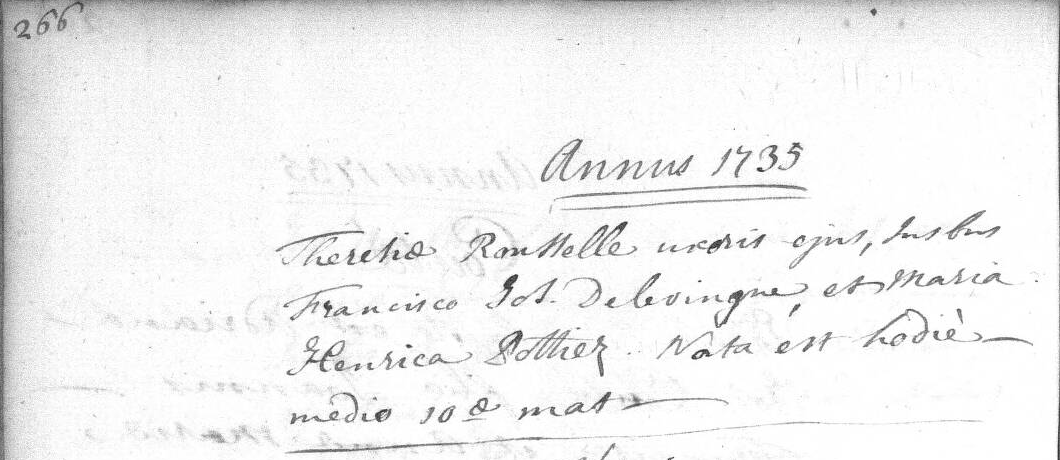 266
Annus 1735
Theresiæ Rousselle uxoris ejus, susbus
Francisco Jos. Delevingne, et Maria
Henrica Pottiez. Nata est hodiè
medio 10æ mat